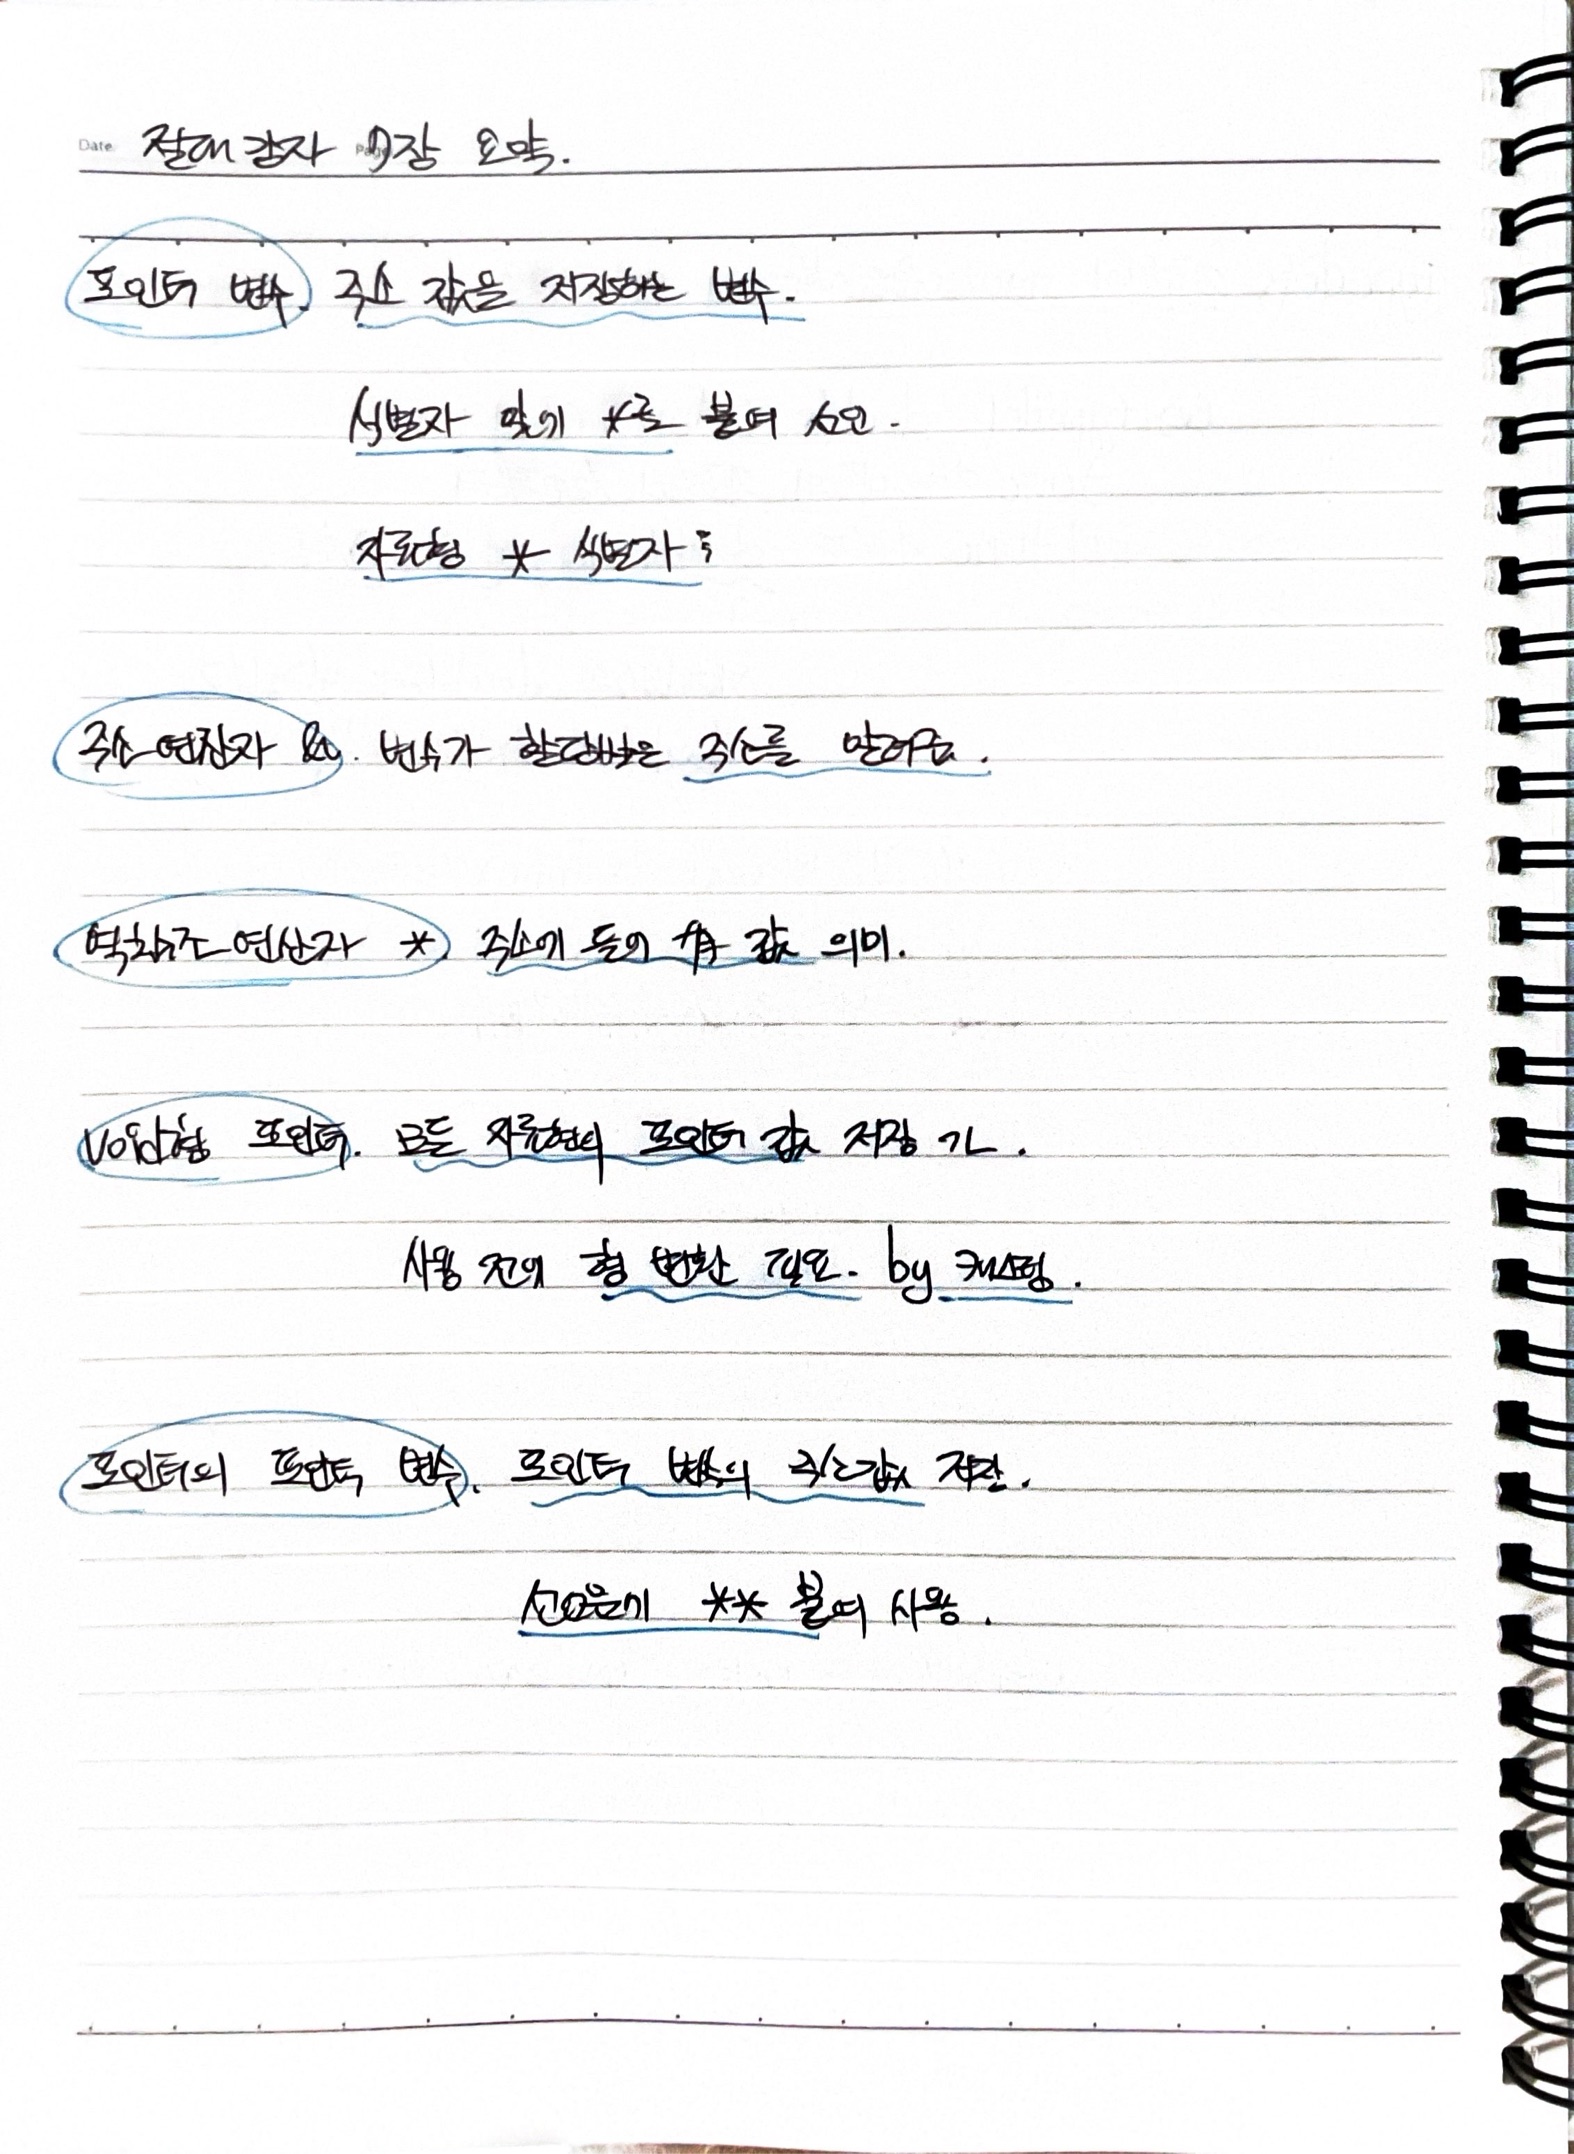 Date. 절대강자 7장 요약.
포인터 변수. 주소 값을 저장하는 변수.
식별자 앞에 *를 붙여 선언.
자료형 * 식별자;
주소 연산자 &. 변수가 할당받은 주소를 알려줌.
역참조 연산자 *. 주소에 들어 있는 값 의미.
void형 포인터. 모든 자료형의 포인터 값 저장 가느.
사용 전에 형 변환 필요. by 캐스팅.
포인터의 포인터 변수. 포인터 변수의 주소값 저장.
선언문에 ** 붙여 사용.